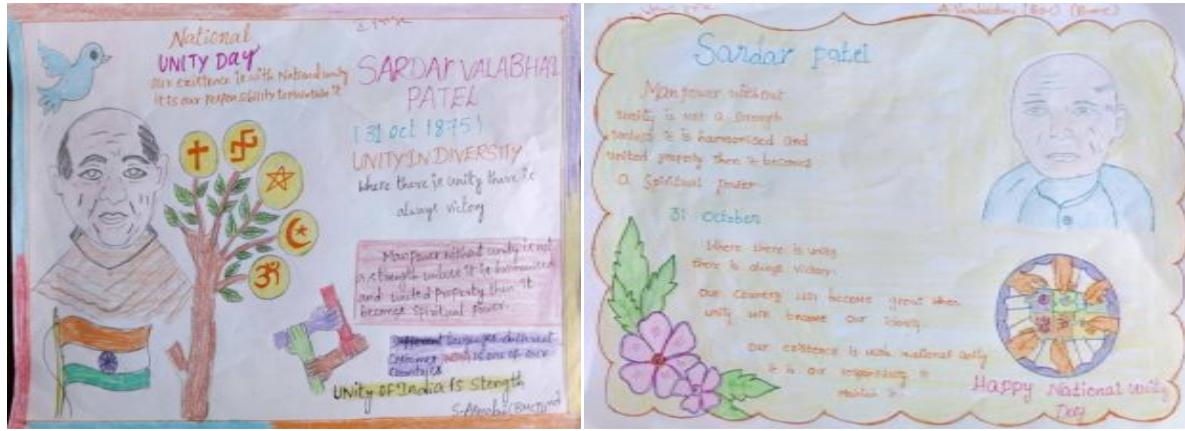 National
UNITY DAY
our existence is with National unity
it is our responsibility to maintain it
SARDAR VALABHAI
PATEL
(31 oct 1875)
UNITY IN DIVERSITY
Where there is unity there is
always victory
Manpower without unity is not
a strength unless it is harmonised
and united property then it
become spiritual power.
Different
is one of our
Countries
Unity of India Is Stength
Sardar patel
Manpower without
unity is not a strength
unless it is harmonised and
united properly then it becomes
a Spiritual power
31 October
Where there is unity
there is always victory.
Our Country will become great when
unity will become our
Our existence is with national unity
it is our responsibility to
maintain it
Happy National Unity
Day